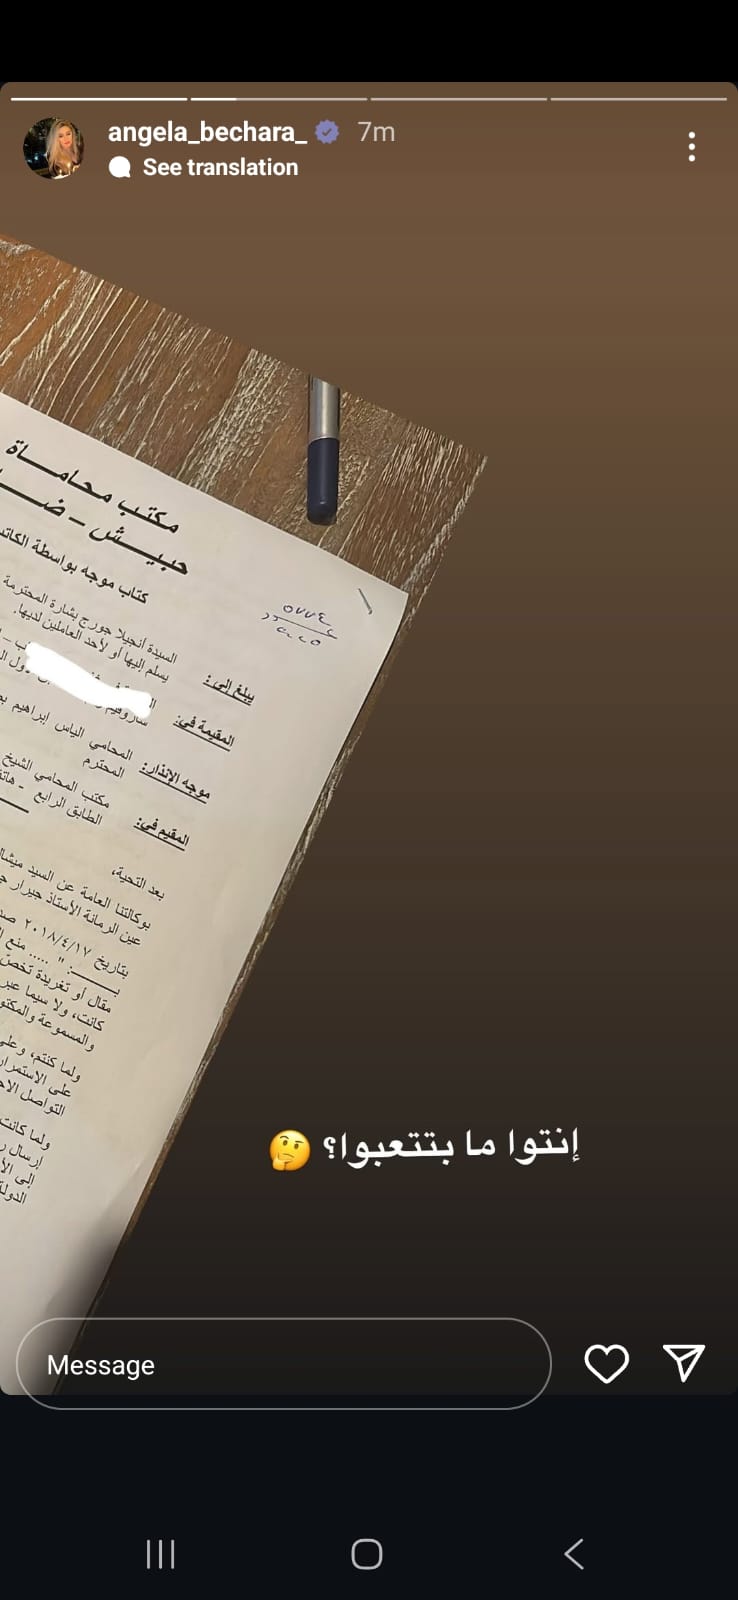 angela_bechara_ 7m
See translation
مكتب محاماة
حبيش - ضـ
كتاب موجه بواسطة الكاتب
٥٧٧٤
يبلغ إلى: السيدة أنجيلا جورج بشارة المحترمة
يسلم إليها أو لأحد العاملين لديها.
المقيمة في:
موجه الإنذار: المحامي الياس ابراهيم
المحترم
المقيم في: مكتب المحامي الشيخ
الطابق الرابع -
بعد التحية،
بوكالتنا العامة عن السيد ميشال
عين الرمانة الأستاذ جيرار
بتاريخ ٢٠١٨/٤/١٧
" ..... منع
مقال أو تغريدة تخص
كانت، ولا سيما عبر
والمسموعة والمكتو
ولما كنتم، وعلى
على الاستمرار
التواصل الا
ولما كانت
إرسال
إلى الأ
الدولة
إنتوا ما بتتعبوا؟ 🤔
Message